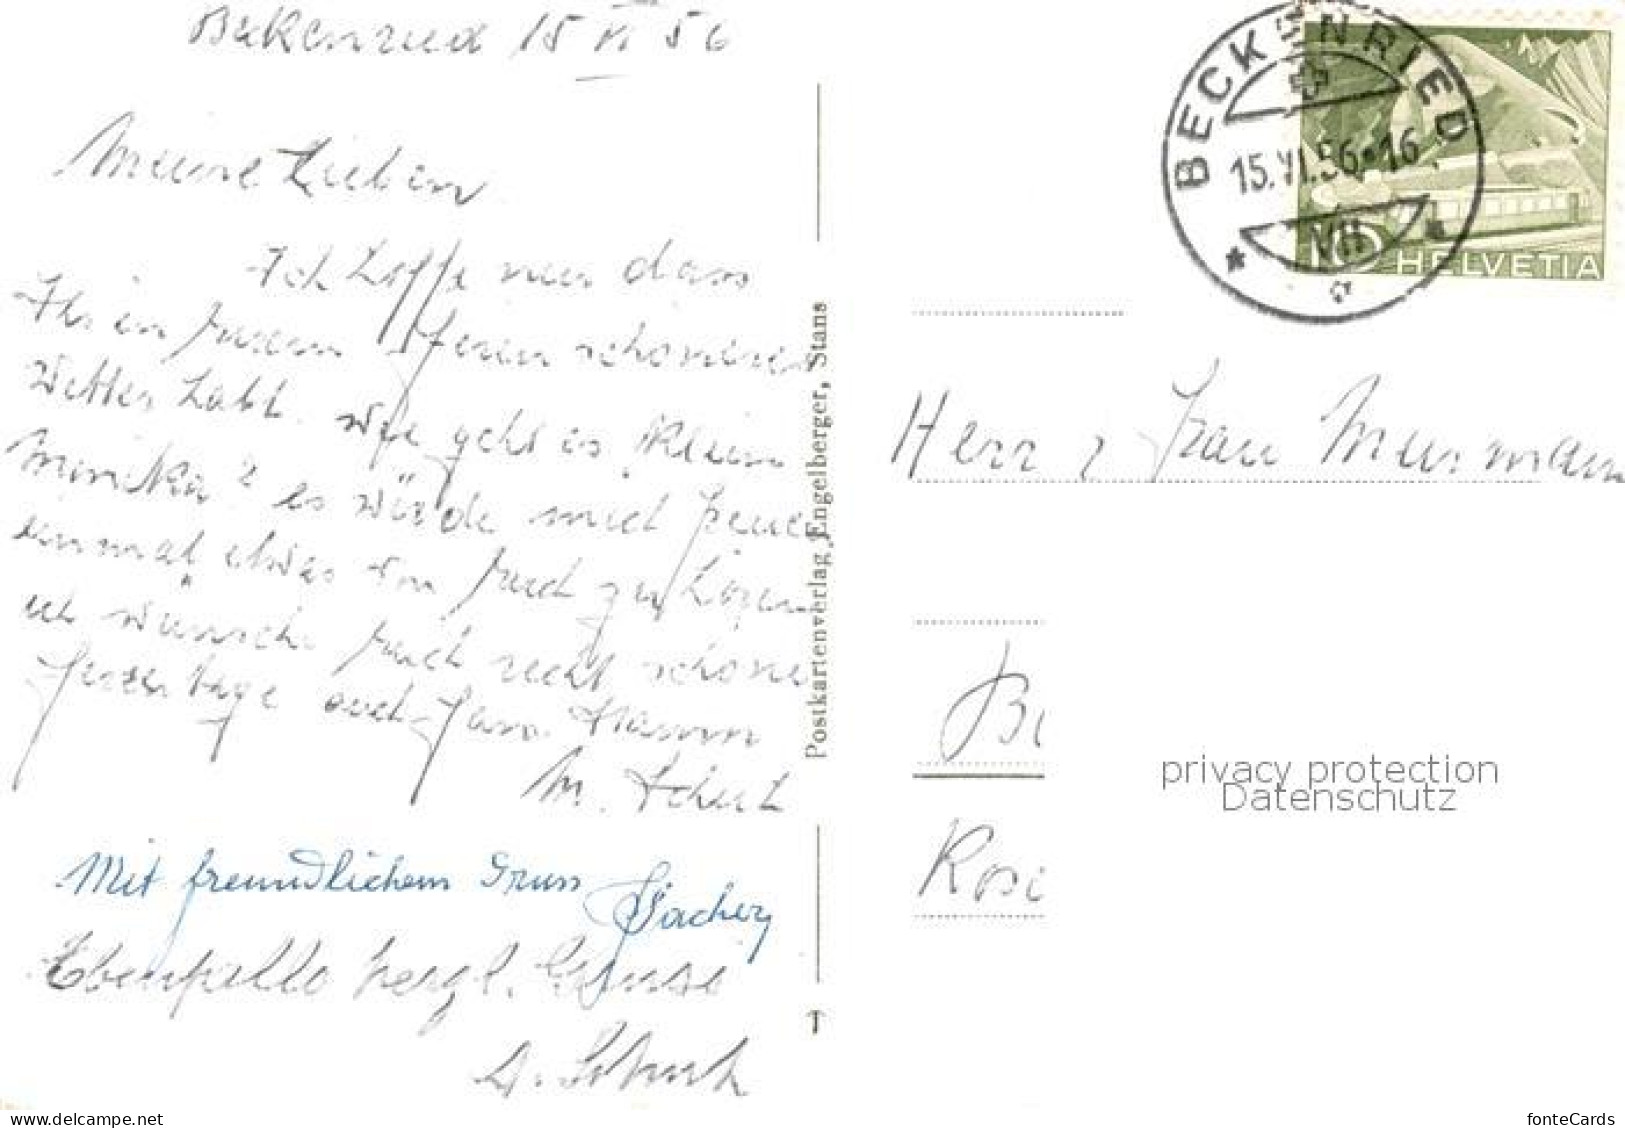 Bekenried 15 VI 56
Meine Lieben
Ich hoffe nur dass
Ihr in Ferien schöneres
Wetter habt. Wie geht es Klein
Monika? es würde mich freuen
einmal etwas von Euch zu hören
ich wünsche Euch recht schöne
Ferientage auch
M.
Mit freundlichem Gruss
Ebenfalls herzl. Grüsse
A.
Postkartenverlag Engelberger, Stans
BECKENRIED
15.VI.56-16
VII
10 HELVETIA
Herr & Frau Meurmann
privacy protection
Datenschutz
www.delcampe.net
fonteCards